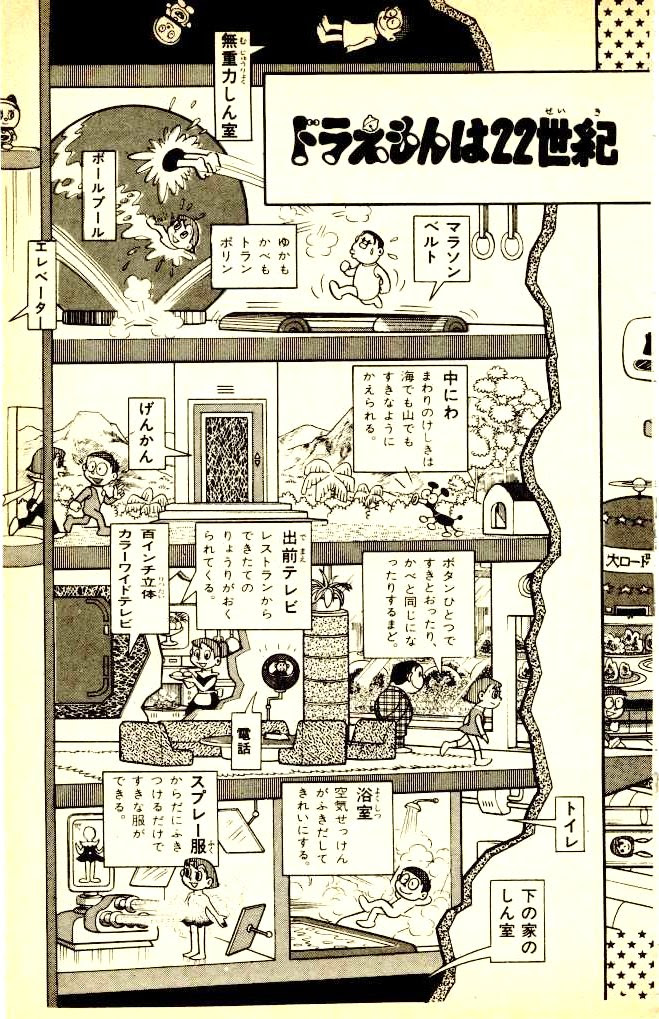 ドラえもんは22世紀
せいき
無重力しん室
むじゅうりょく
ボールプール
エレベーター
マラソン
ベルト
ゆかも
かべも
トラン
ポリン
中にわ
まわりのけしきは
海でも山でも
すきなように
かえられる。
げんかん
ボタンひとつで
すきとおったり、
かべと同じにな
ったりするまど。
出前テレビ
でまえ
レストランから
できたての
りょうりがおく
られてくる。
百インチ立体
りったい
カラーワイドテレビ
電話
トイレ
浴室
よくしつ
空気せっけん
がふきだして
きれいにする。
スプレー服
ふく
からだにふき
つけるだけで
すきな服が
できる。
下の家の
しん室
大ロード